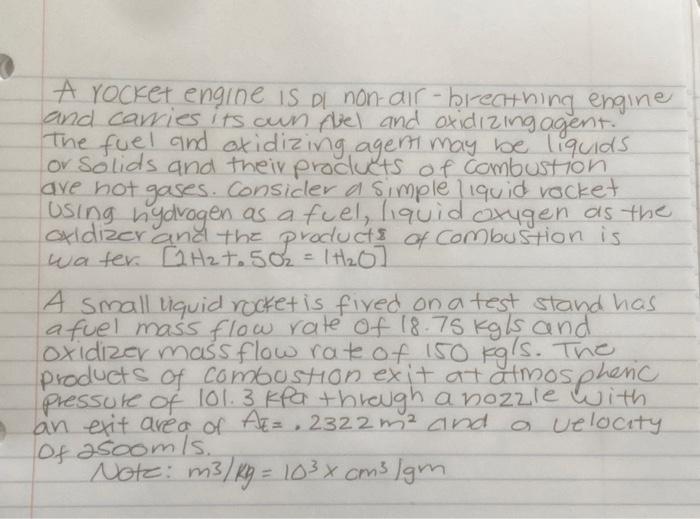 A rocket engine is a non-air-breathing engine
and carries its own fuel and oxidizing agent.
The fuel and oxidizing agent may be liquids
or solids and their products of combustion
are hot gases. Consider a simple liquid rocket
using hydrogen as a fuel, liquid oxygen as the
oxidizer and the products of combustion is
water. [1H2+.5O2 = 1H2O]
A small liquid rocket is fired on a test stand has
a fuel mass flow rate of 18.75 kg/s and
oxidizer mass flow rate of 150 kg/s. The
products of combustion exit at atmospheric
pressure of 101.3 KPa through a nozzle with
an exit area of AE= .2322 m² and a velocity
of 2500m/s.
Note: m3/kg = 10³ x cm³/gm